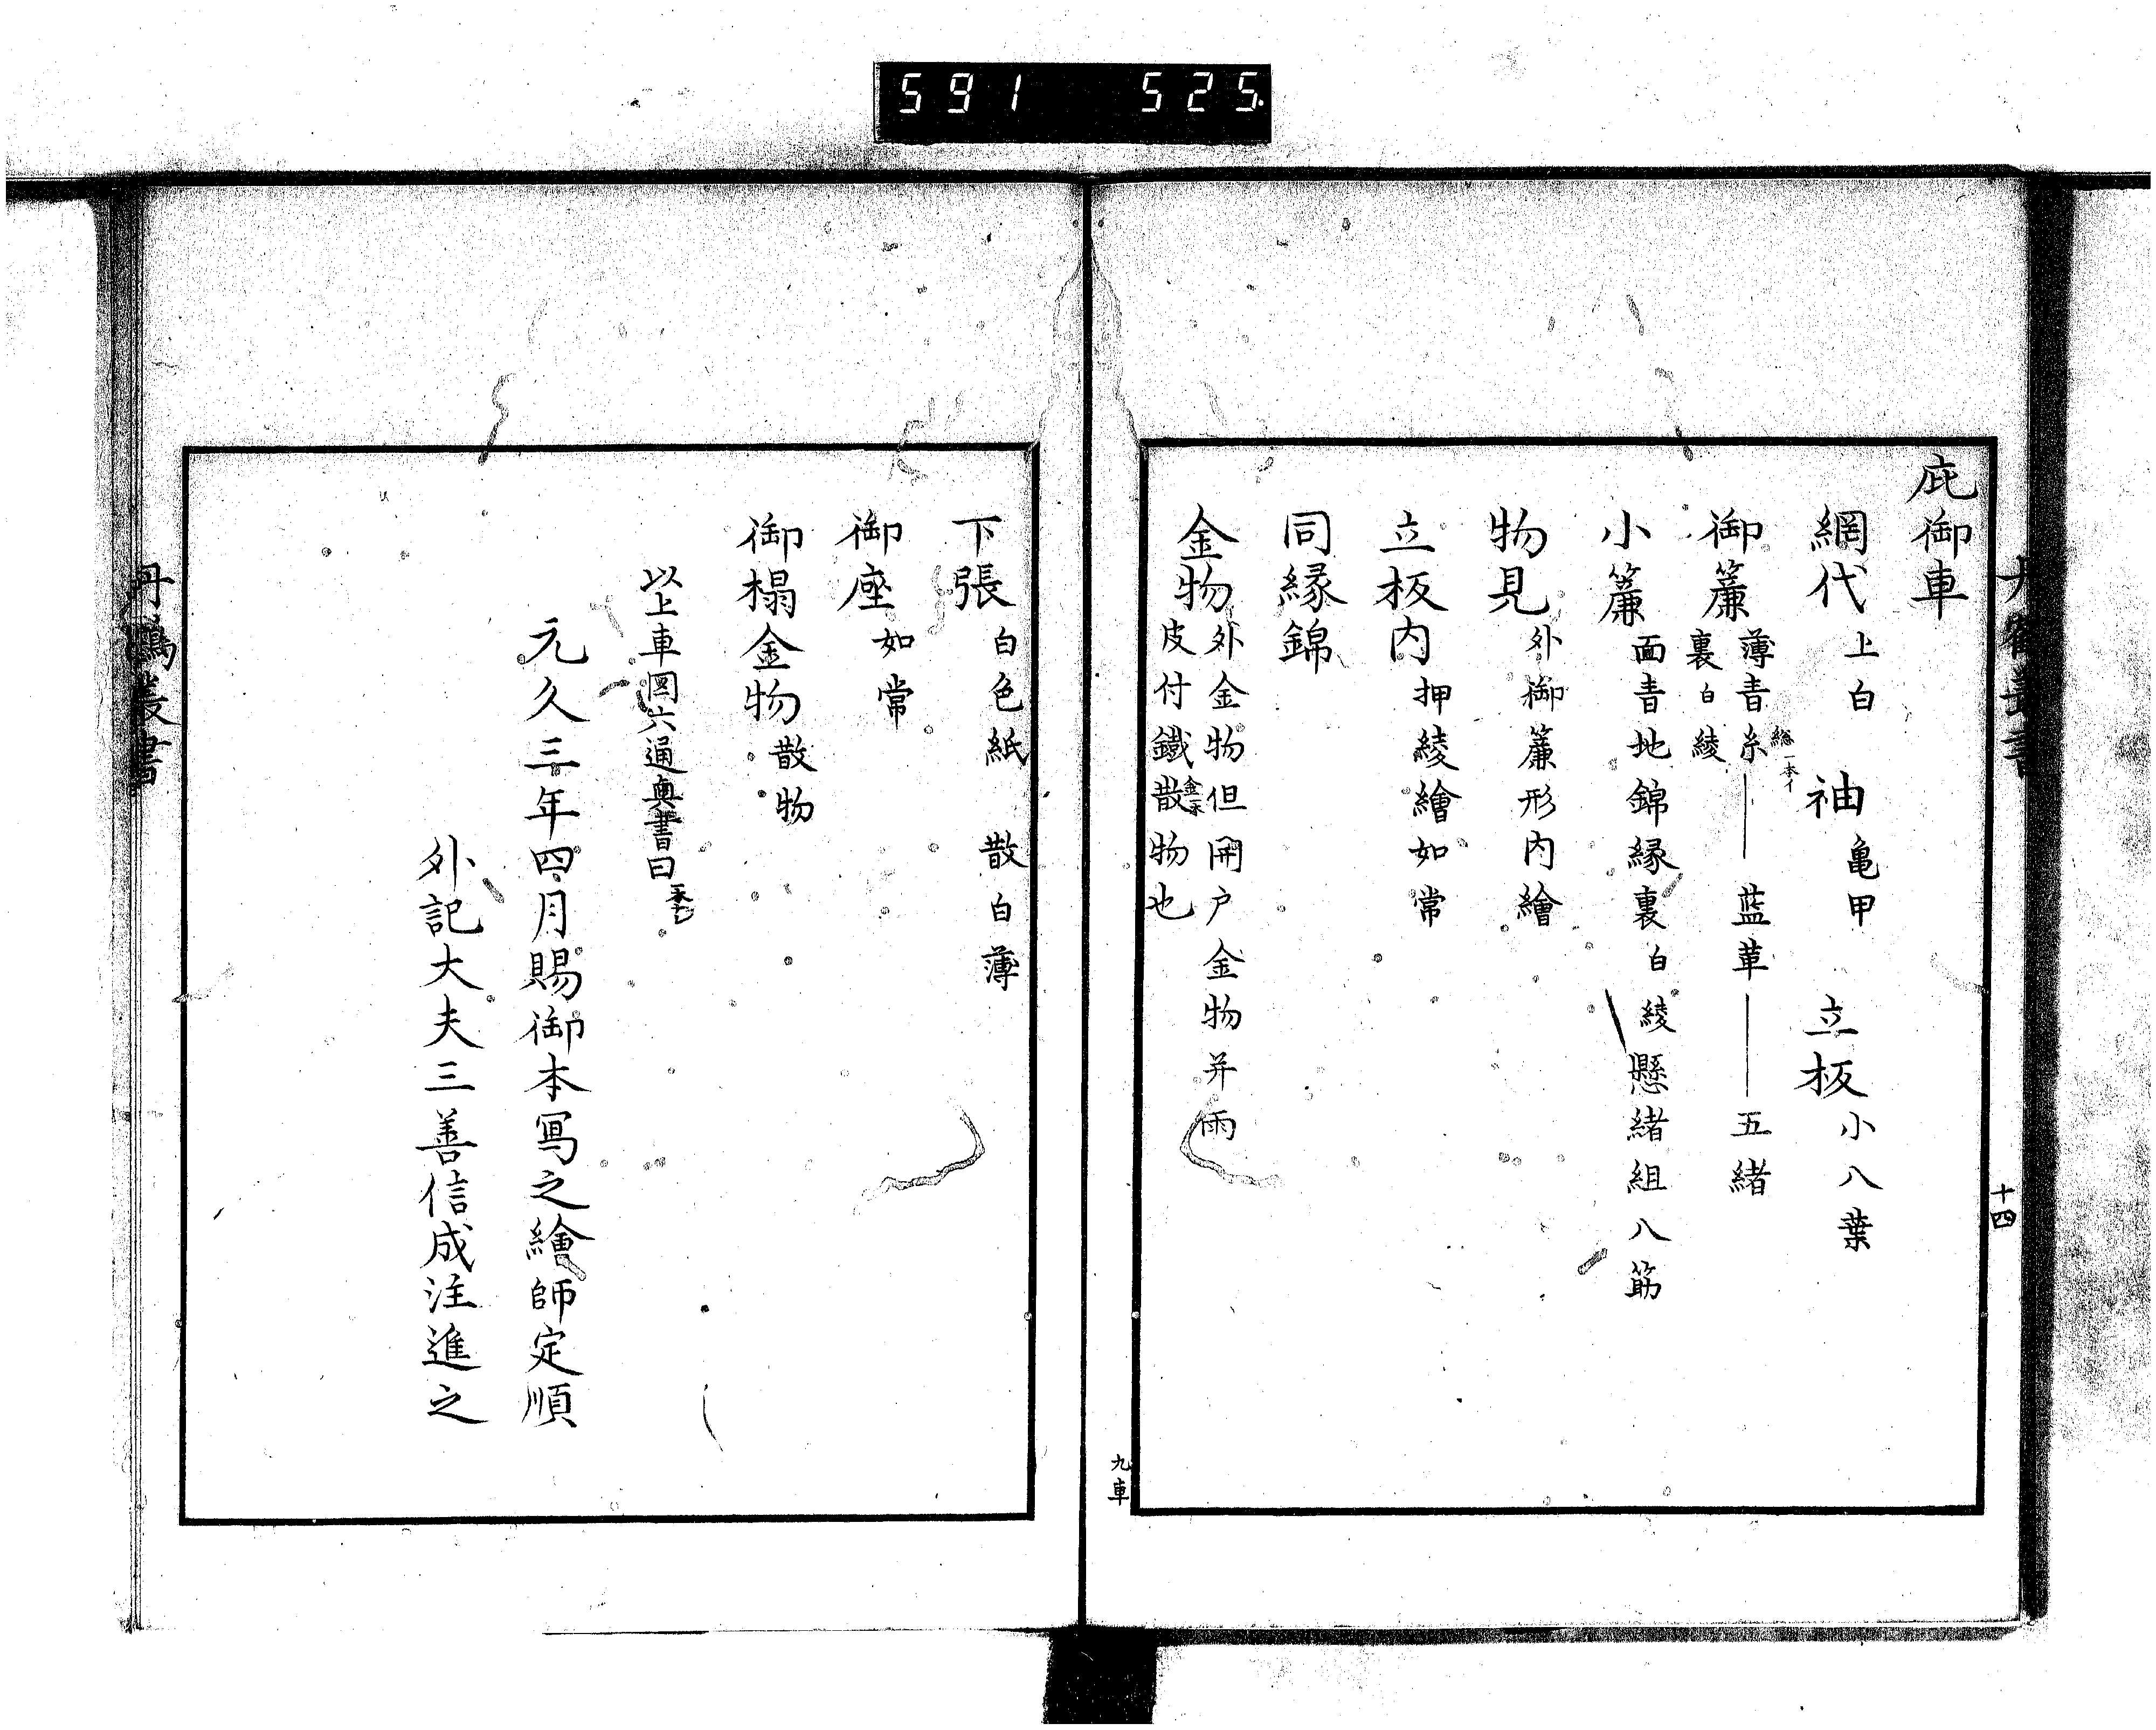 591 525
庇御車
網代上白 袖亀甲 立板小八葉
御簾薄青糸――藍革――五緒
総一本イ
裏白綾
小簾面青地錦縁裏白綾懸緒組八筋
物見外御簾形内繪
立板内押綾繪如常
同縁錦
金物外金物但開戸金物并雨
皮付鐵散物也
下張白色紙 散白薄
御座如常
御榻金物散物
以上車圖六通奥書曰
元久三年四月賜御本寫之繪師定順
外記大夫三善信成注進之
十四
九車
丹鶴叢書
丹鶴叢書